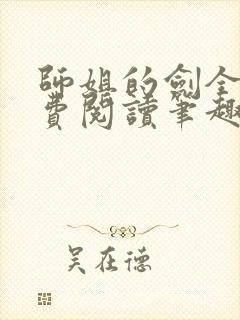 師姐的劍全
費閱讀筆趣
吴在德